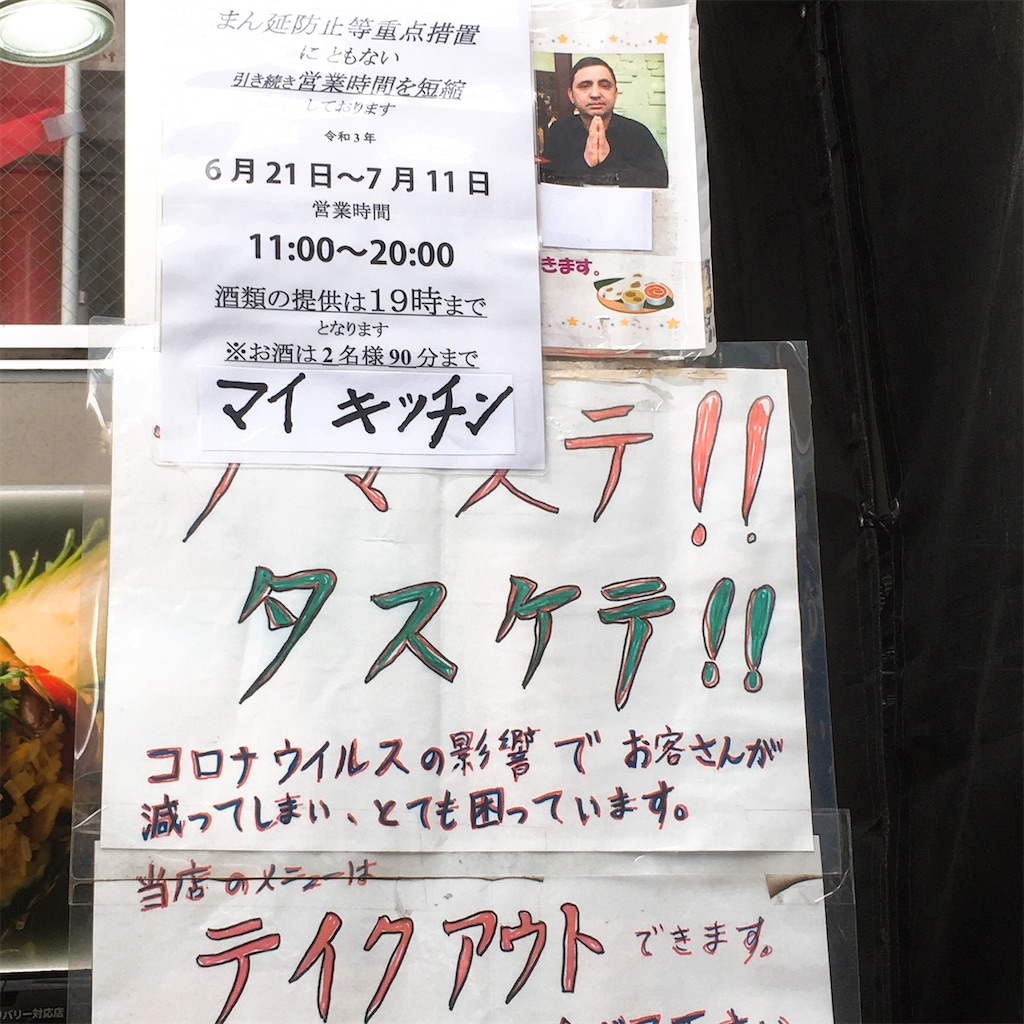 まん延防止等重点措置
にともない
引き続き営業時間を短縮
しております
令和3年
6月21日～7月11日
営業時間
11:00～20:00
酒類の提供は19時まで
となります
※お酒は2名様90分まで
マイ キッチン
きます。
ナマステ!!
タスケテ!!
コロナウイルスの影響でお客さんが
減ってしまい、とても困っています。
当店のメニューは
テイクアウトできます。
バリー対応店